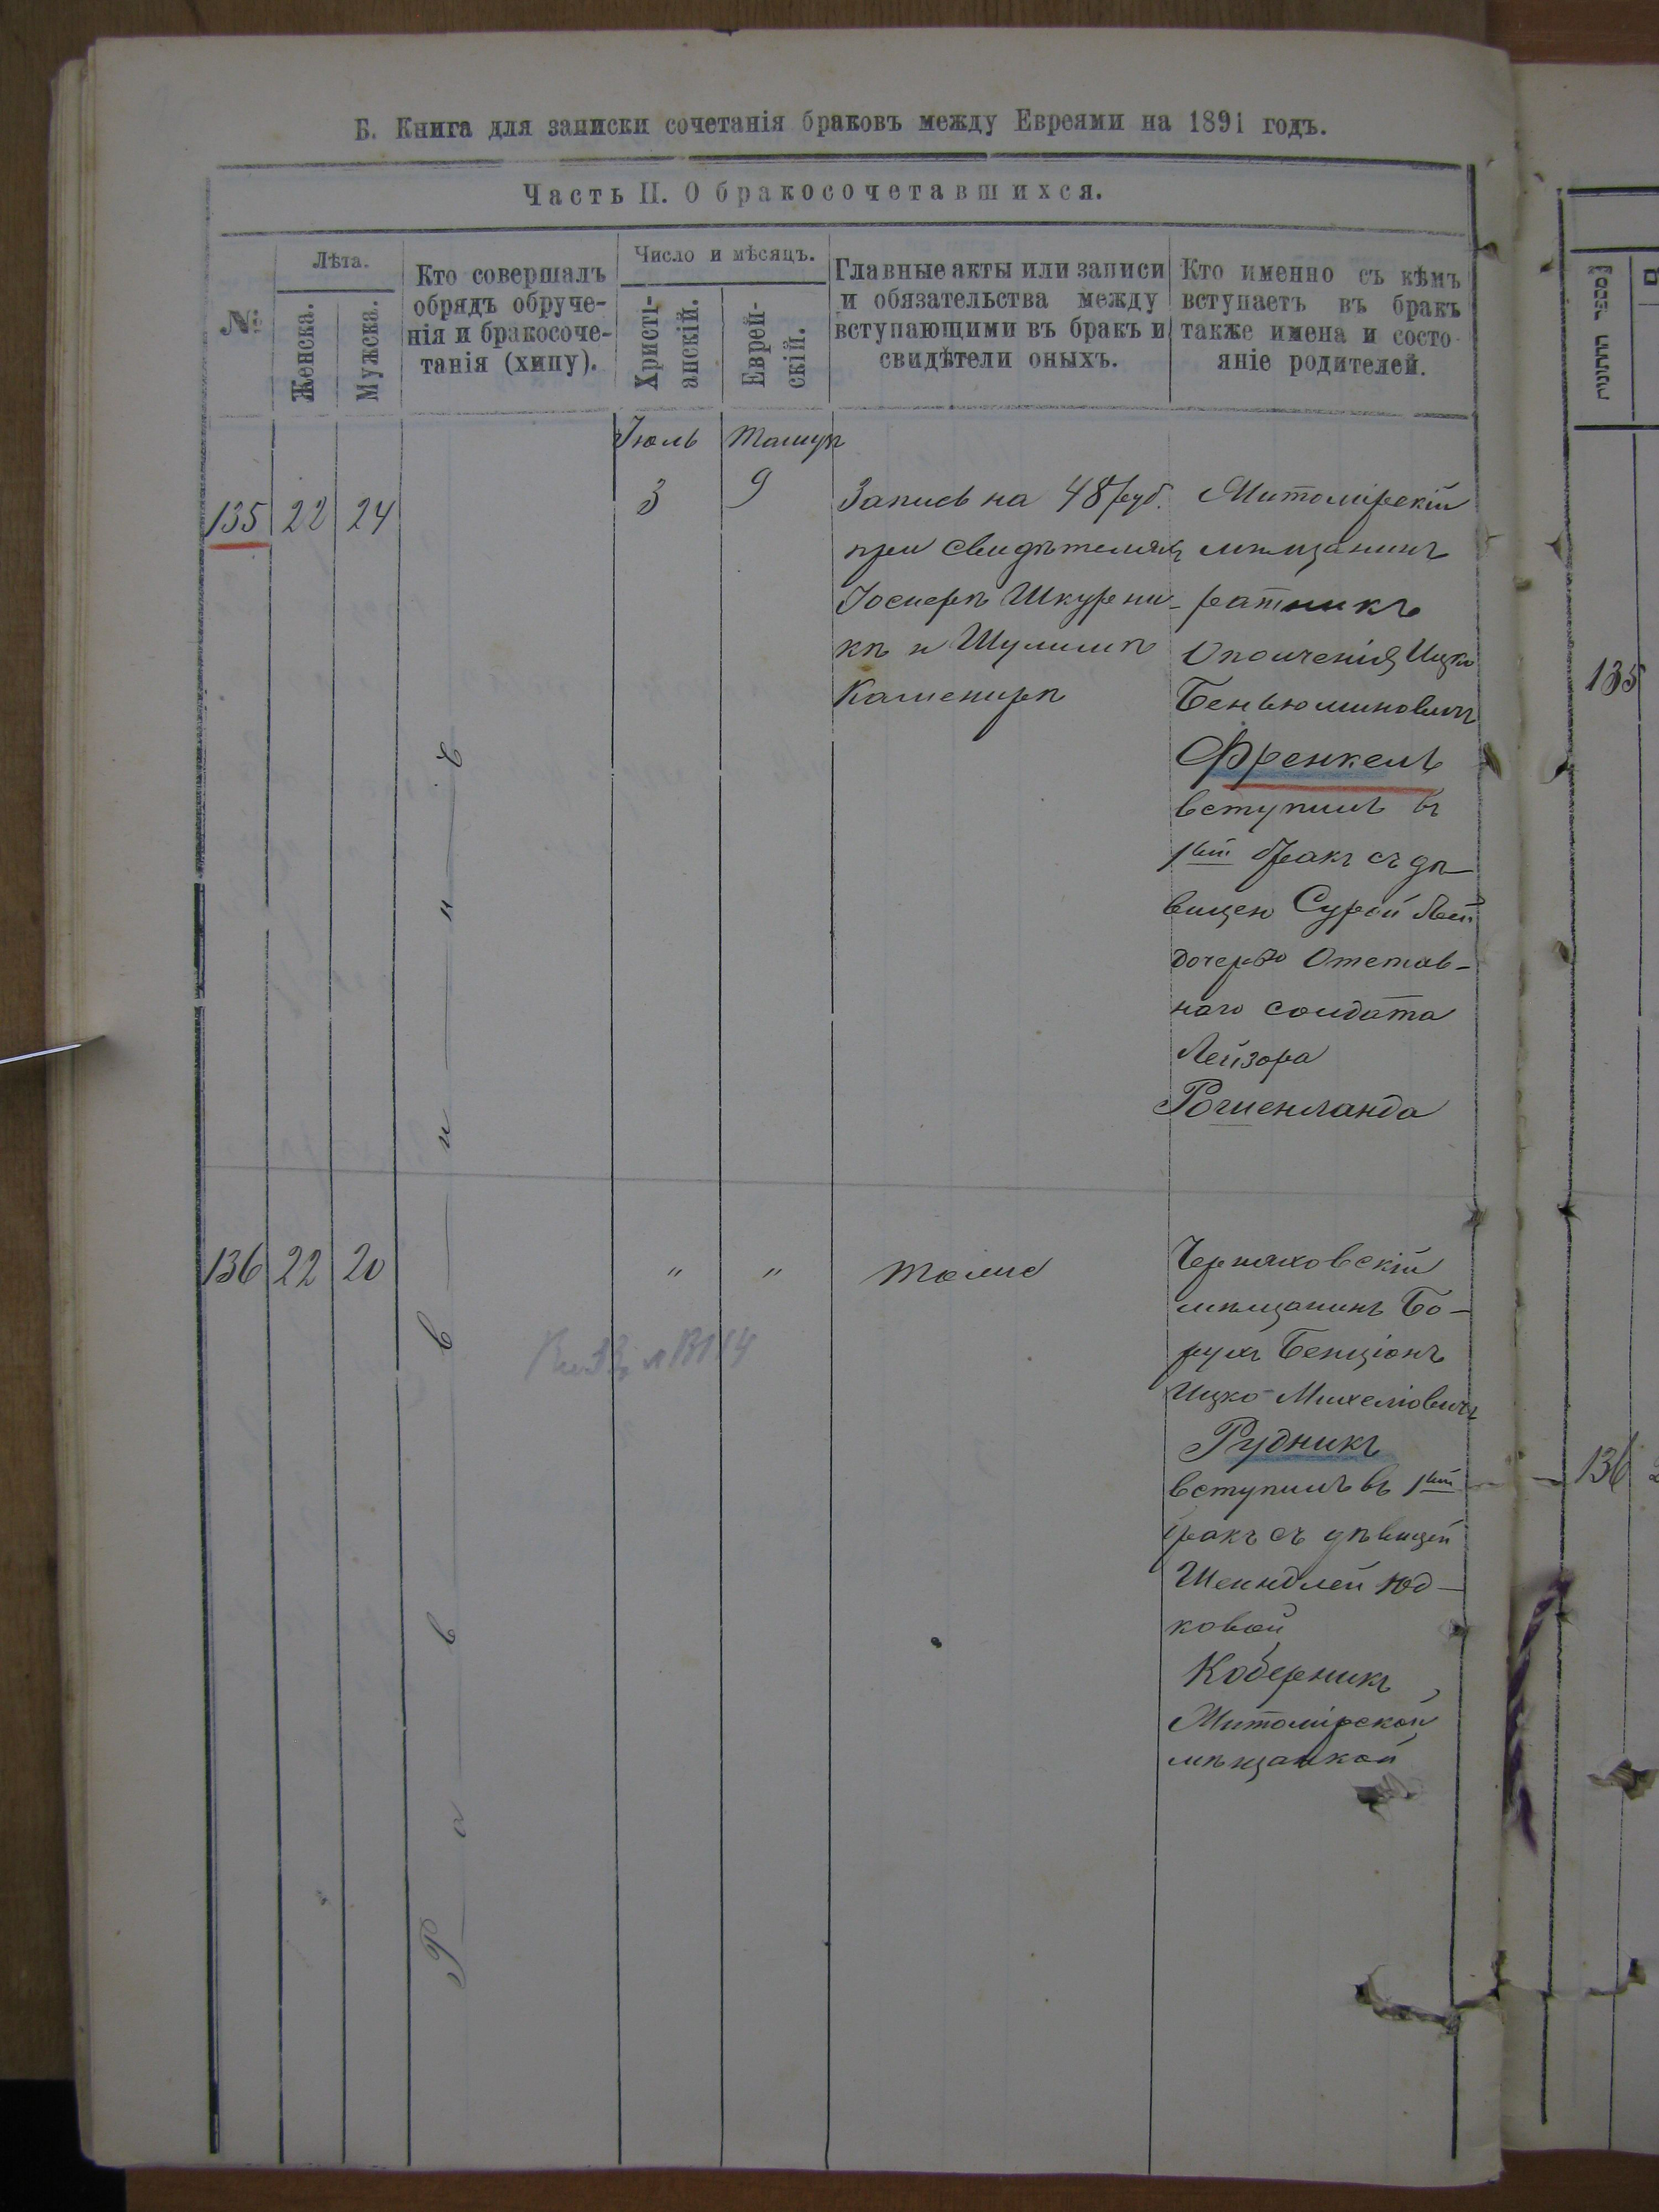 Б. Книга для записки сочетанія браковъ между Евреями на 1891 годъ.
Часть II. О бракосочетавшихся.
№
Лѣта.
Женска.
Мужска.
Кто совершалъ
обрядъ обруче-
нія и бракосоче-
танія (хипу).
Число и мѣсяцъ.
Христі-
анскій.
Еврей-
скій.
Главные акты или записи
и обязательства между
вступающими въ бракъ и
свидѣтели оныхъ.
Кто именно съ кѣмъ
вступаетъ въ бракъ
также имена и состо-
яніе родителей.
Іюль
Тамуз
135
22
24
3
9
Запись на 48 руб.
при свидѣтеляхъ
Іосифѣ Шкурни-
кѣ и Шулимѣ
Каменирѣ
Житомірскій
мѣщанинъ
ратникъ
Ополченія Ицко
Беньюминовичъ
Френкель
вступилъ въ
1вый бракъ съ дѣ-
вицею Сурой Леей
дочерью Отстав-
наго солдата
Лейзора
136
22
20
"
"
тоже
Черняховскій
мѣщанинъ Бо-
рухъ Бенціонъ
Ицко-Михелювичъ
Рудникъ
вступилъ въ 1вый
бракъ съ дѣвицей
Шейндлей Юд-
ковой
Коберникъ
Житомірской
мѣщанкой
Раввинъ
135
136